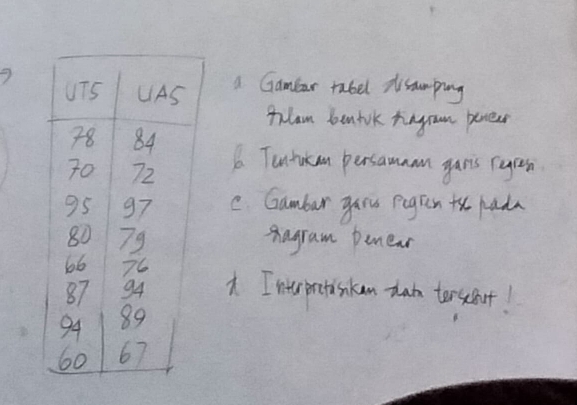 UTS UAS
78 84
70 72
95 97
80 79
66 76
87 94
94 89
60 67
a Gambar tabel disamping
dalam bentuk diagram pencar
b. Tentukan persamaan garis regresi
c. Gambar garis regresi tsb pada
diagram pencar
d Interpretasikan data tersebut!